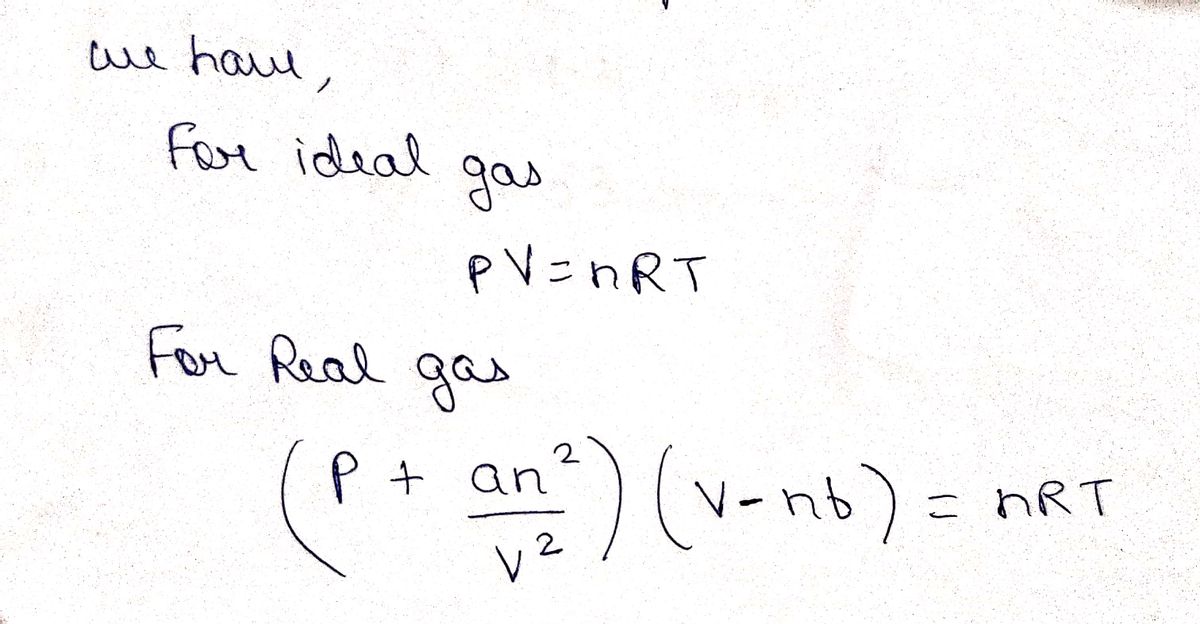 we have,
For ideal gas
PV=nRT
For Real gas
(P + an²/V²) (V-nb) = nRT